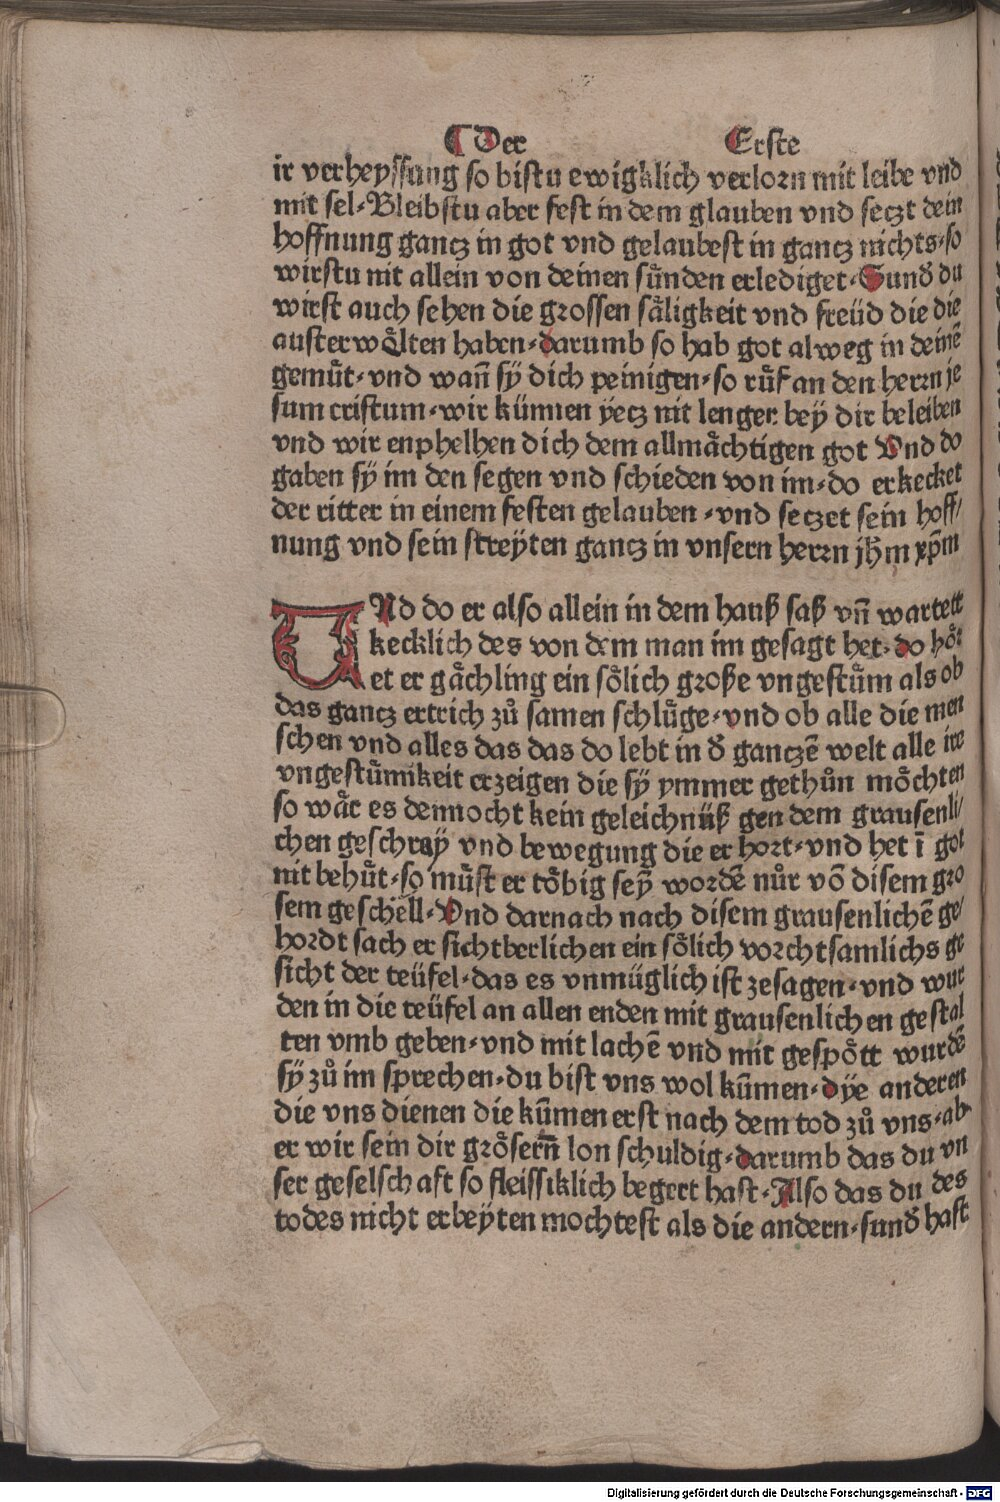 ¶ Der Erste
ir verheyssung so bistu ewigklich verlorn mit leibe vnd
mit sel. Bleibstu aber fest in dem glauben vnd seczt dein
hoffnung gancz in got vnd gelaubest in gancz nichts. so
wirstu nit allein von deinen sünden erlediget. Sunđ du
wirst auch sehen die grossen säligkeit vnd freüd die die
austerwölten haben. darumb so hab got alweg in deinē
gemuͤt. vnd wañ sÿ dich peinigen. so ruͤf an den herrn je
sum cristum. wir künnen ÿecz nit lenger bey dir beleiben
vnd wir enphelhen dich dem allmächtigen got Vnd do
gaben sÿ im den segen vnd schieden von im. do erkecket
der ritter in einem festen gelauben. vnd seczet sein hoff/
nung vnd sein streÿten gancz in vnsern herrn jhm̄ xp̄m
VNd do er also allein in dem hauß saß vñ wartett
kecklich des von dem man im gesagt het. do hoͤr
et er gächling ein soͤlich große vngestuͤm als ob
das gancz ertrich zuͦ samen schluͤge. vnd ob alle die men
schen vnd alles das das do lebt in đ ganczē welt alle ire
vngestuͤmikeit erzeigen die sÿ ymmer gethuͦn moͤchten
so waͤr es dennocht kein geleichnüß gen dem grausenli/
chen geschraÿ vnd bewegung die er hort. vnd het ī got
nit behuͤt. so muͤst er toͤbig seȳ wordē nuͦr vō disem gro
sem geschell. Vnd darnach nach disem grausenlichē ge/
hordt sach er sichtberlichen ein soͤlich vorchtsamlichs ge
sicht der teüfel. das es vnmüglich ist zesagen. vnd wur
den in die teüfel an allen enden mit grausenlichen gestal
ten vmb geben. vnd mit lachē vnd mit gespoͤtt wurdē
sÿ zuͦ im sprechen. du bist vns wol kūmen. dÿe anderen
die vns dienen die kūmen erst nach dem tod zuͦ vns. ab
er wir sein dir groͤsern̄ lon schuldig. darumb das du vn
ser geselschaft so fleissiklich begert hast. Also das du des
todes nicht erbeÿten mochtest als die andern. sunđ hast
Digitalisierung gefördert durch die Deutsche Forschungsgemeinschaft - DFG